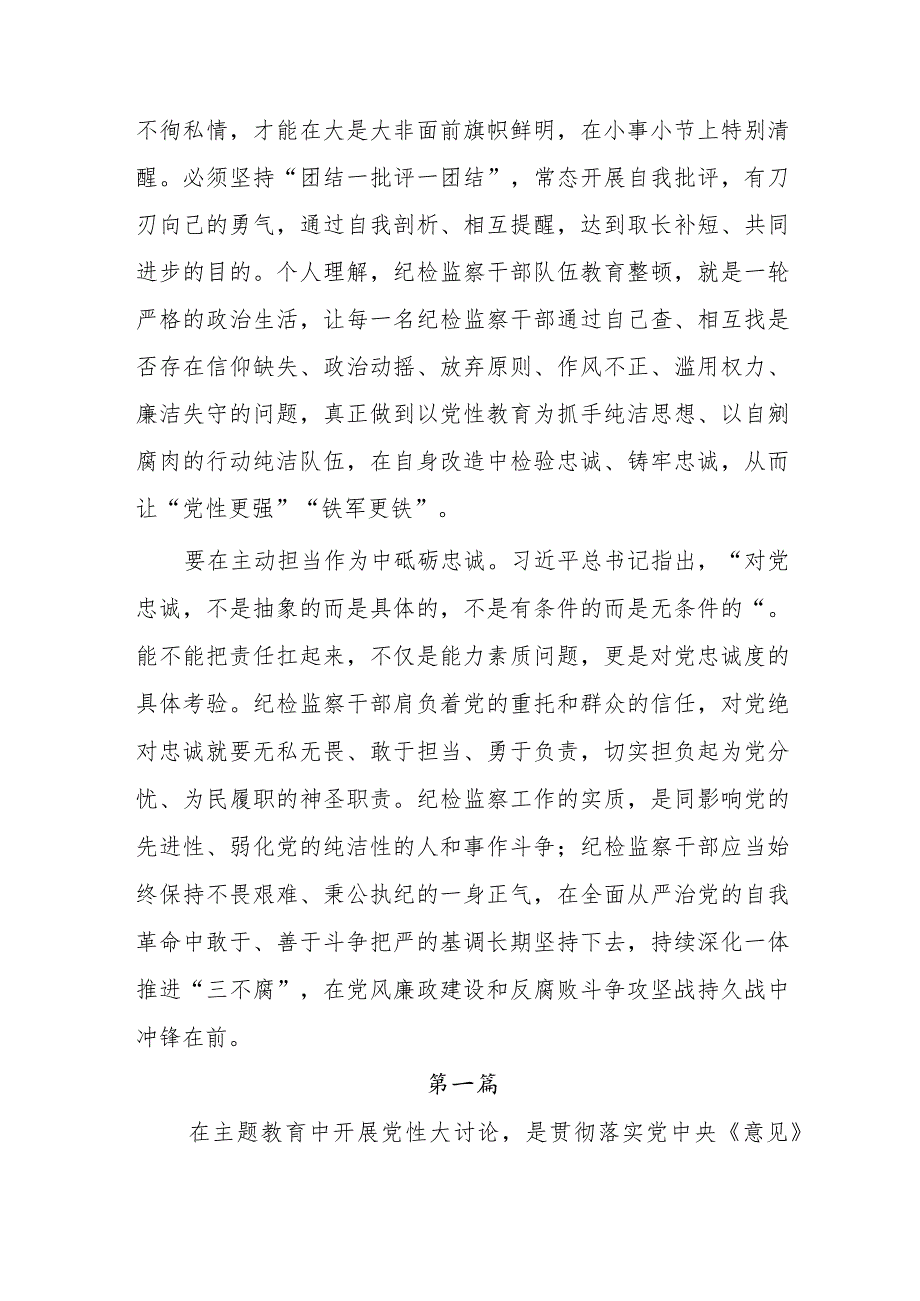 不徇私情，才能在大是大非面前旗帜鲜明，在小事小节上特别清
醒。必须坚持“团结一批评一团结”，常态开展自我批评，有刀
刃向己的勇气，通过自我剖析、相互提醒，达到取长补短、共同
进步的目的。个人理解，纪检监察干部队伍教育整顿，就是一轮
严格的政治生活，让每一名纪检监察干部通过自己查、相互找是
否存在信仰缺失、政治动摇、放弃原则、作风不正、滥用权力、
廉洁失守的问题，真正做到以党性教育为抓手纯洁思想、以自剜
腐肉的行动纯洁队伍，在自身改造中检验忠诚、铸牢忠诚，从而
让“党性更强”“铁军更铁”。
要在主动担当作为中砥砺忠诚。习近平总书记指出，“对党
忠诚，不是抽象的而是具体的，不是有条件的而是无条件的“。
能不能把责任扛起来，不仅是能力素质问题，更是对党忠诚度的
具体考验。纪检监察干部肩负着党的重托和群众的信任，对党绝
对忠诚就要无私无畏、敢于担当、勇于负责，切实担负起为党分
忧、为民履职的神圣职责。纪检监察工作的实质，是同影响党的
先进性、弱化党的纯洁性的人和事作斗争；纪检监察干部应当始
终保持不畏艰难、秉公执纪的一身正气，在全面从严治党的自我
革命中敢于、善于斗争把严的基调长期坚持下去，持续深化一体
推进“三不腐”，在党风廉政建设和反腐败斗争攻坚战持久战中
冲锋在前。
第一篇
在主题教育中开展党性大讨论，是贯彻落实党中央《意见》